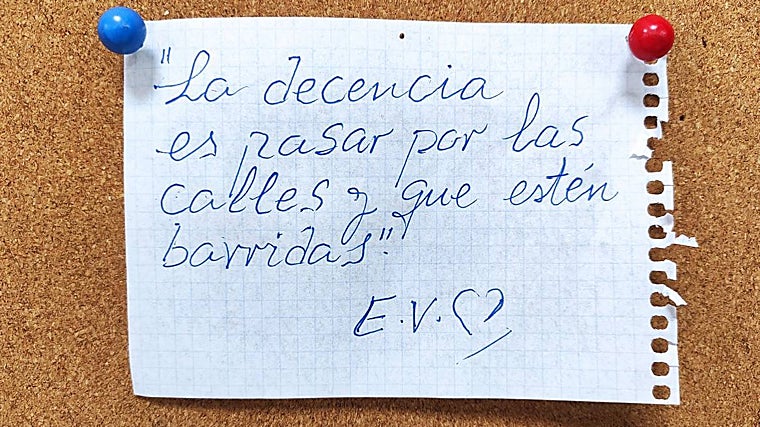 "La decencia
es pasar por las
calles y que estén
barridas".
E.V.